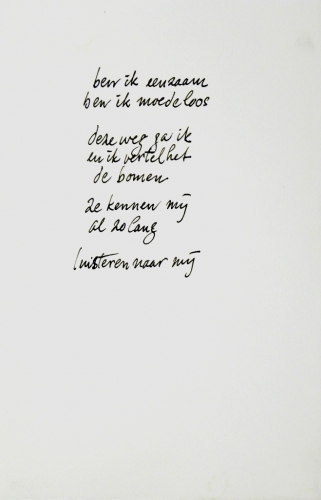 ben ik eenzaam
ben ik moedeloos
deze weg ga ik
en ik vertel het
de bomen
ze kennen mij
al zo lang
luisteren naar mij